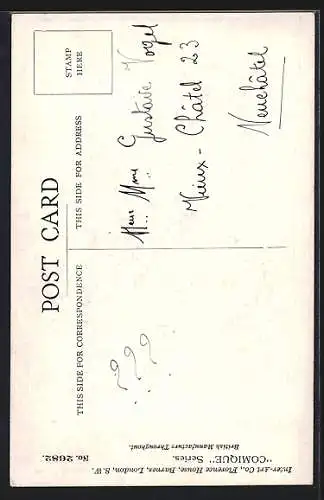 POST CARD
THIS SIDE FOR CORRESPONDENCE
THIS SIDE FOR ADDRESS
STAMP
HERE
Mme Gustave Vogel
Vieux-Châtel 23
Neuchâtel
???
No. 2682.
"COMIQUE" Series.
Inter-Art Co., Florence House, Barnes, London, S.W.
British Manufacture Throughout.